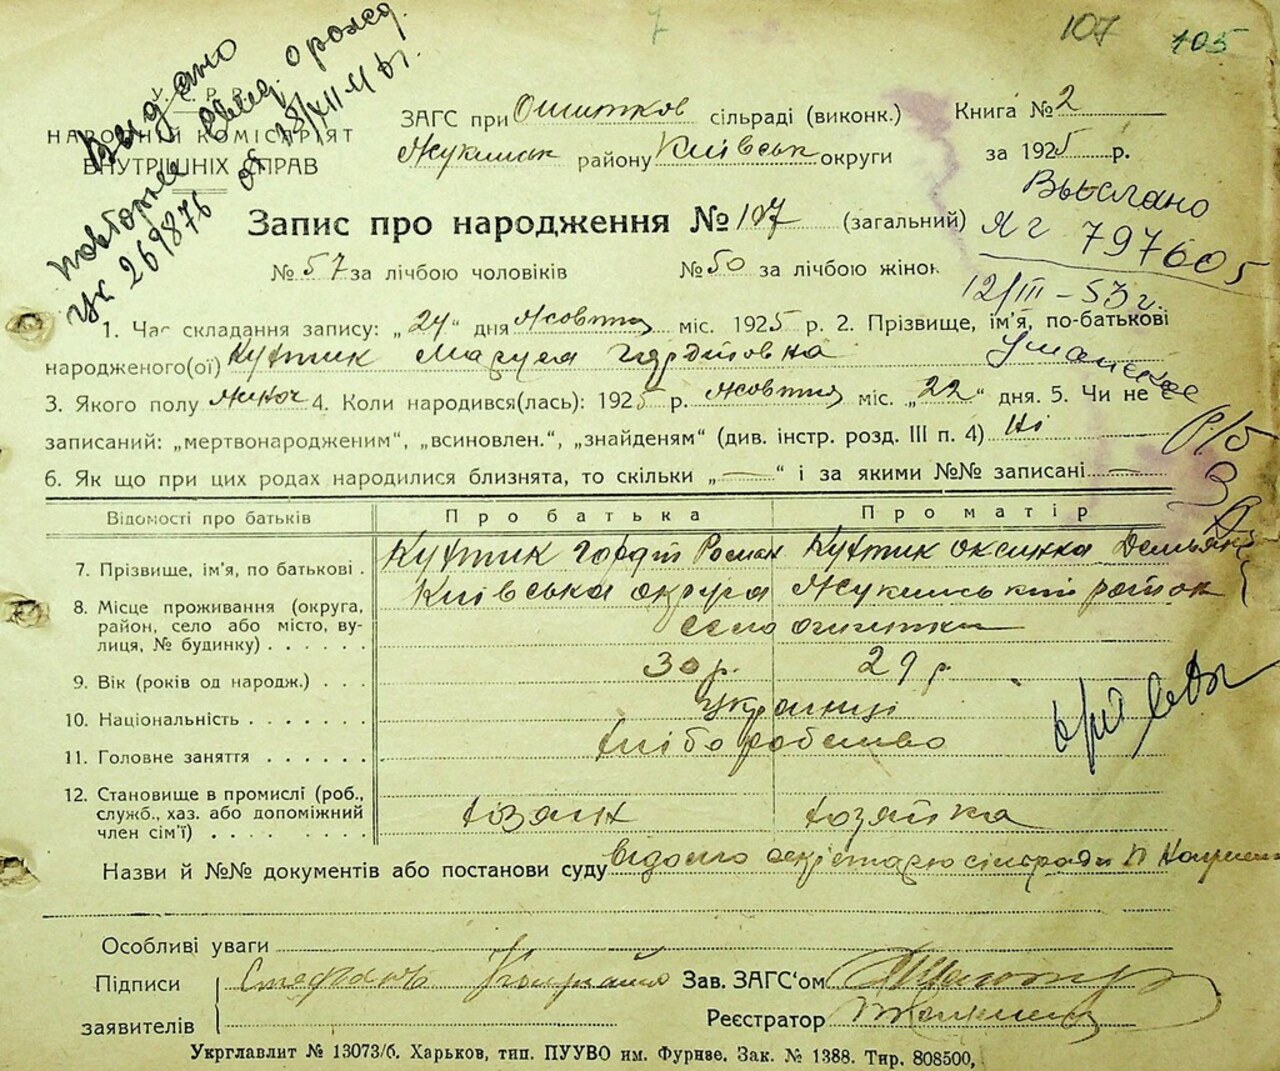 7
107
105
Видано
повторне
269876
У. С. Р. Р.
НАРОДНІЙ КОМІСАРІЯТ
ВНУТРІШНІХ СПРАВ
ЗАГС при Ошитков сільраді (виконк.)
Жукинськ району Київськ округи
Книга № 2
за 1925 р.
Выслано
ЯГ 797605
12/III-53 г.
Запис про народження № 107 (загальний)
№ 57 за лічбою чоловіків № 50 за лічбою жінок
1. Час складання запису: „24“ дня жовтня міс. 1925 р. 2. Прізвище, ім'я, по-батькові
народженого(ої) Маруся Гордіовна
3. Якого полу жіноч 4. Коли народився(лась): 1925 р. жовтня міс. „22“ дня. 5. Чи не є
записаний: „мертвонародженим“, „всиновлен.“, „знайденям“ (див. інстр. розд. III п. 4) Ні
6. Як що при цих родах народилися близнята, то скільки „—“ і за якими №№ записані —
Відомості про батьків Про батька Про матір
7. Прізвище, ім'я, по батькові . Гордій Роман Оксинка Демьян
8. Місце проживання (округа, район, село або місто, вулиця, № будинку) . . . . . . Київська округа Жукинський район
село Ошитки
9. Вік (років од народж.) . . . 30 р. 29 р.
10. Національність . . . . . . . українці
11. Головне заняття . . . . . . хліборобство
12. Становище в промислі (роб., служб., хаз. або допоміжний член сім'ї) . . . . . . . хозяін хозяйка
Назви й №№ документів або постанови суду відомо секретарю сільради
Особливі уваги
Підписи
заявителів
Зав. ЗАГС'ом
Реєстратор
Укрглавлит № 13073/б. Харьков, тип. ПУУВО им. Фрунзе. Зак. № 1388. Тир. 808500,